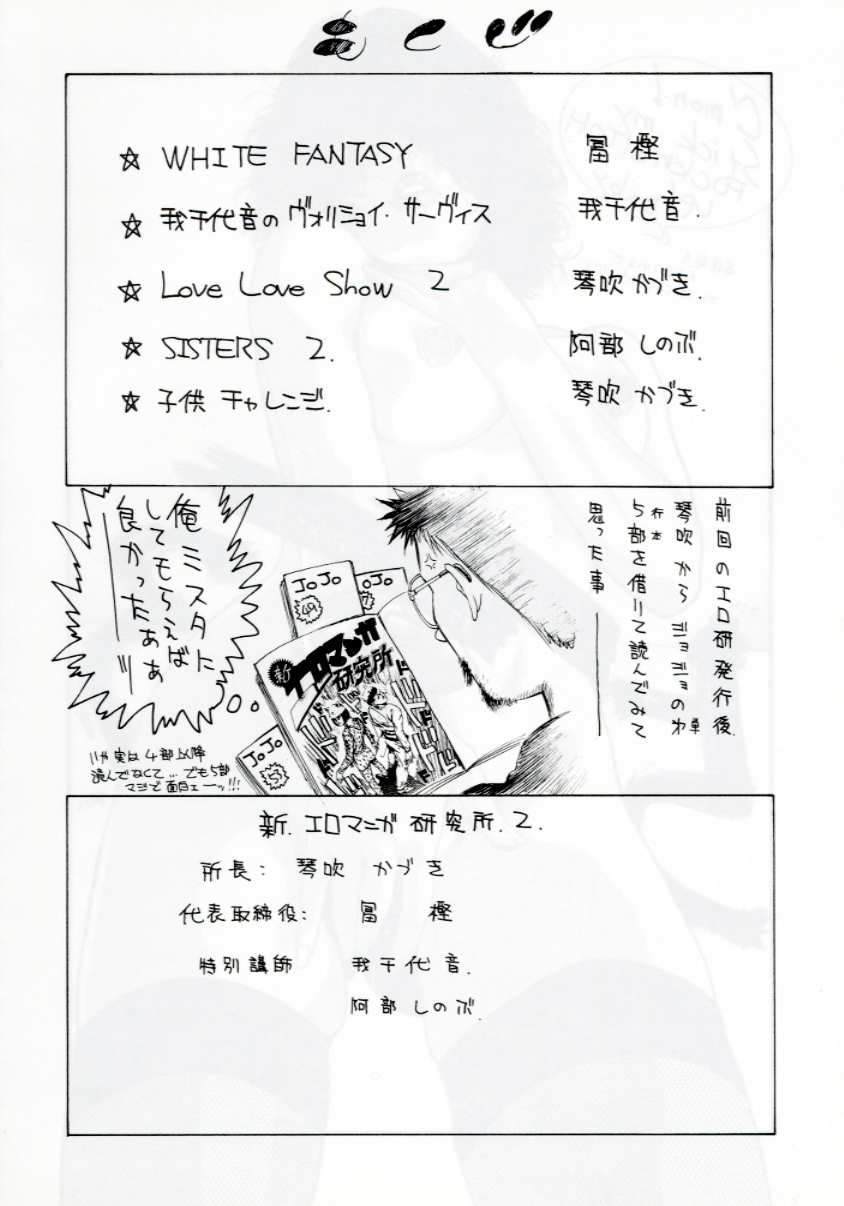 もくじ
☆ WHITE FANTASY 冨樫
☆ 我千代音のヴォリショイ・サーヴィス 我千代音.
☆ Love Love Show 2 琴吹かづき.
☆ SISTERS 2. 阿部しのぶ.
☆ 子供チャレンジ. 琴吹かづき.
前回のエロ研発行後.
琴吹からジョジョの単
行本
5部を借りて読んでみて
思った事
俺ミスタに
してもらえば
良かったぁぁ
――ッ
JoJo
49
JoJo
新
エロマンガ
研究所
JoJo
53
いや実は4部以降
読んでなくて…でも5部
マジで面白ェーッ!!!
新.エロマンガ研究所.2.
所長: 琴吹かづき
代表取締役: 冨樫
特別講師 我千代音.
阿部しのぶ.